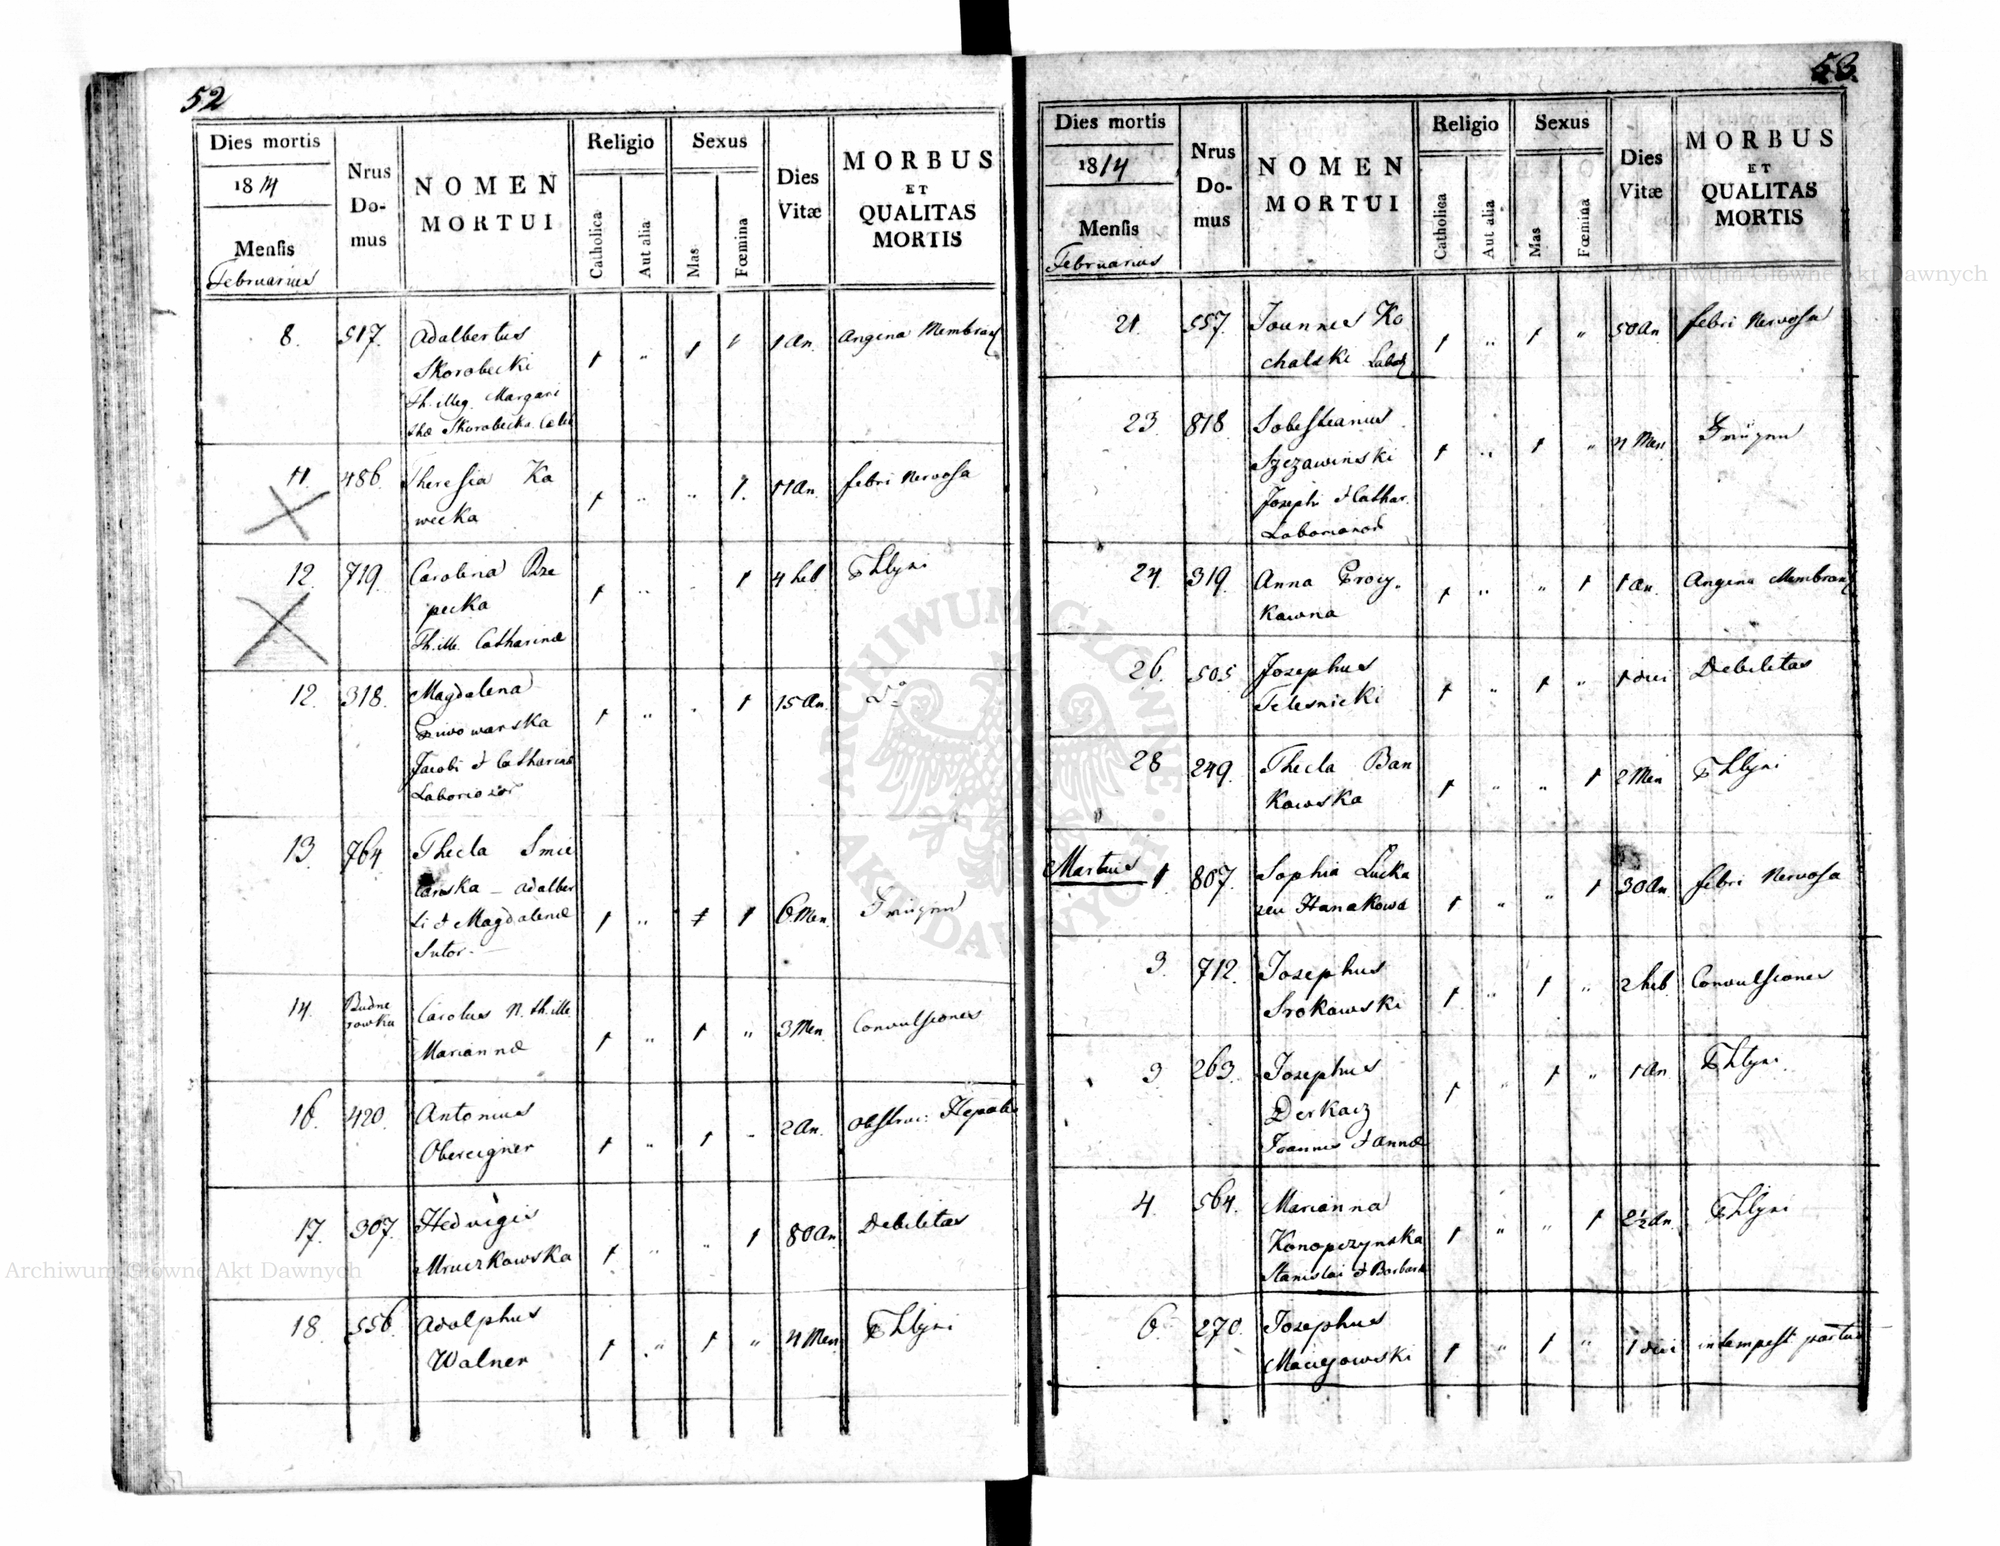 52
Dies mortis
1814
Mensis
Februarius
Nrus
Do-
mus
NOMEN
MORTUI
Religio
Catholica
Aut alia
Sexus
Mas
Fœmina
Dies
Vitæ
MORBUS
ET
QUALITAS
MORTIS
8. 517. Adalbertus 1 An. Angina Membran
Skorobecki 1 " 1
Th. illeg. Margari
thæ Skorobecka Cælib
11. 486. Theresia Ka 11 An. febri Nervosa
wecka 1 " " 1.
12. 719. Carolina Rze 1 " 1 4 heb
pecka
Th. ille. Catharinæ
12. 318. Magdalena 1 " 1 15 An. do
Piwowarska
Jacobi & Catharinæ
Laborioror
13. 764 Thecla Smie
tanska - Adalber
ti & Magdalenæ 1 " 1 6 Men
Sutor.
14. Budne
rowka Carolus N. th. ille 1 " 1 " 3 Men Convulsiones
Mariannæ
16. 420. Antonius 2 An. Obstruc: Hepatis
Obereigner 1 " 1 "
17. 307. Hedvigis 1 " " 1 80 An Debilitas
Mruczkowska
18. 556. Adolphus 4 Men
Walner 1 " 1 "
53.
Dies mortis
1814
Mensis
Februarius
Nrus
Do-
mus
NOMEN
MORTUI
Religio
Catholica
Aut alia
Sexus
Mas
Fœmina
Dies
Vitæ
MORBUS
ET
QUALITAS
MORTIS
21. 557. Joannes Ko 1 " 1 " 50 An febri Nervosa
chalski Labor
23. 818. Sobestianus 1 " 1 " 4 Men
Szczawinski
Josephi & Cathar.
Laborioror
24. 319. Anna Procy- 1 " " 1 1 An. Angina Membran
kowna
26. 505 Josephus 1 " 1 " 1 diei Debilitas
Telesnicki
28 249. Thecla Ban 1 " " 1 2 Men
kowska
Martius 1 807. Sophia Lucka 1 " " 1 30 An. febri Nervosa
seu Hanakowa
3. 712. Josephus 1 " 1 " 2 heb. Convulsiones
Srokowski
3 263. Josephus 1 " 1 " 1 An
Derkacz
Joannis & Annæ
4. 564. Marianna 1 " " 1 2½ An.
Konopczynska
Stanislai & Barbaræ
6. 270. Josephus 1 " 1 " 1 diei intempest partus
Maciejowski
Archiwum Główne Akt Dawnych
Archiwum Główne Akt Dawnych
ARCHIWUM GŁÓWNE · AKT DAWNYCH ·